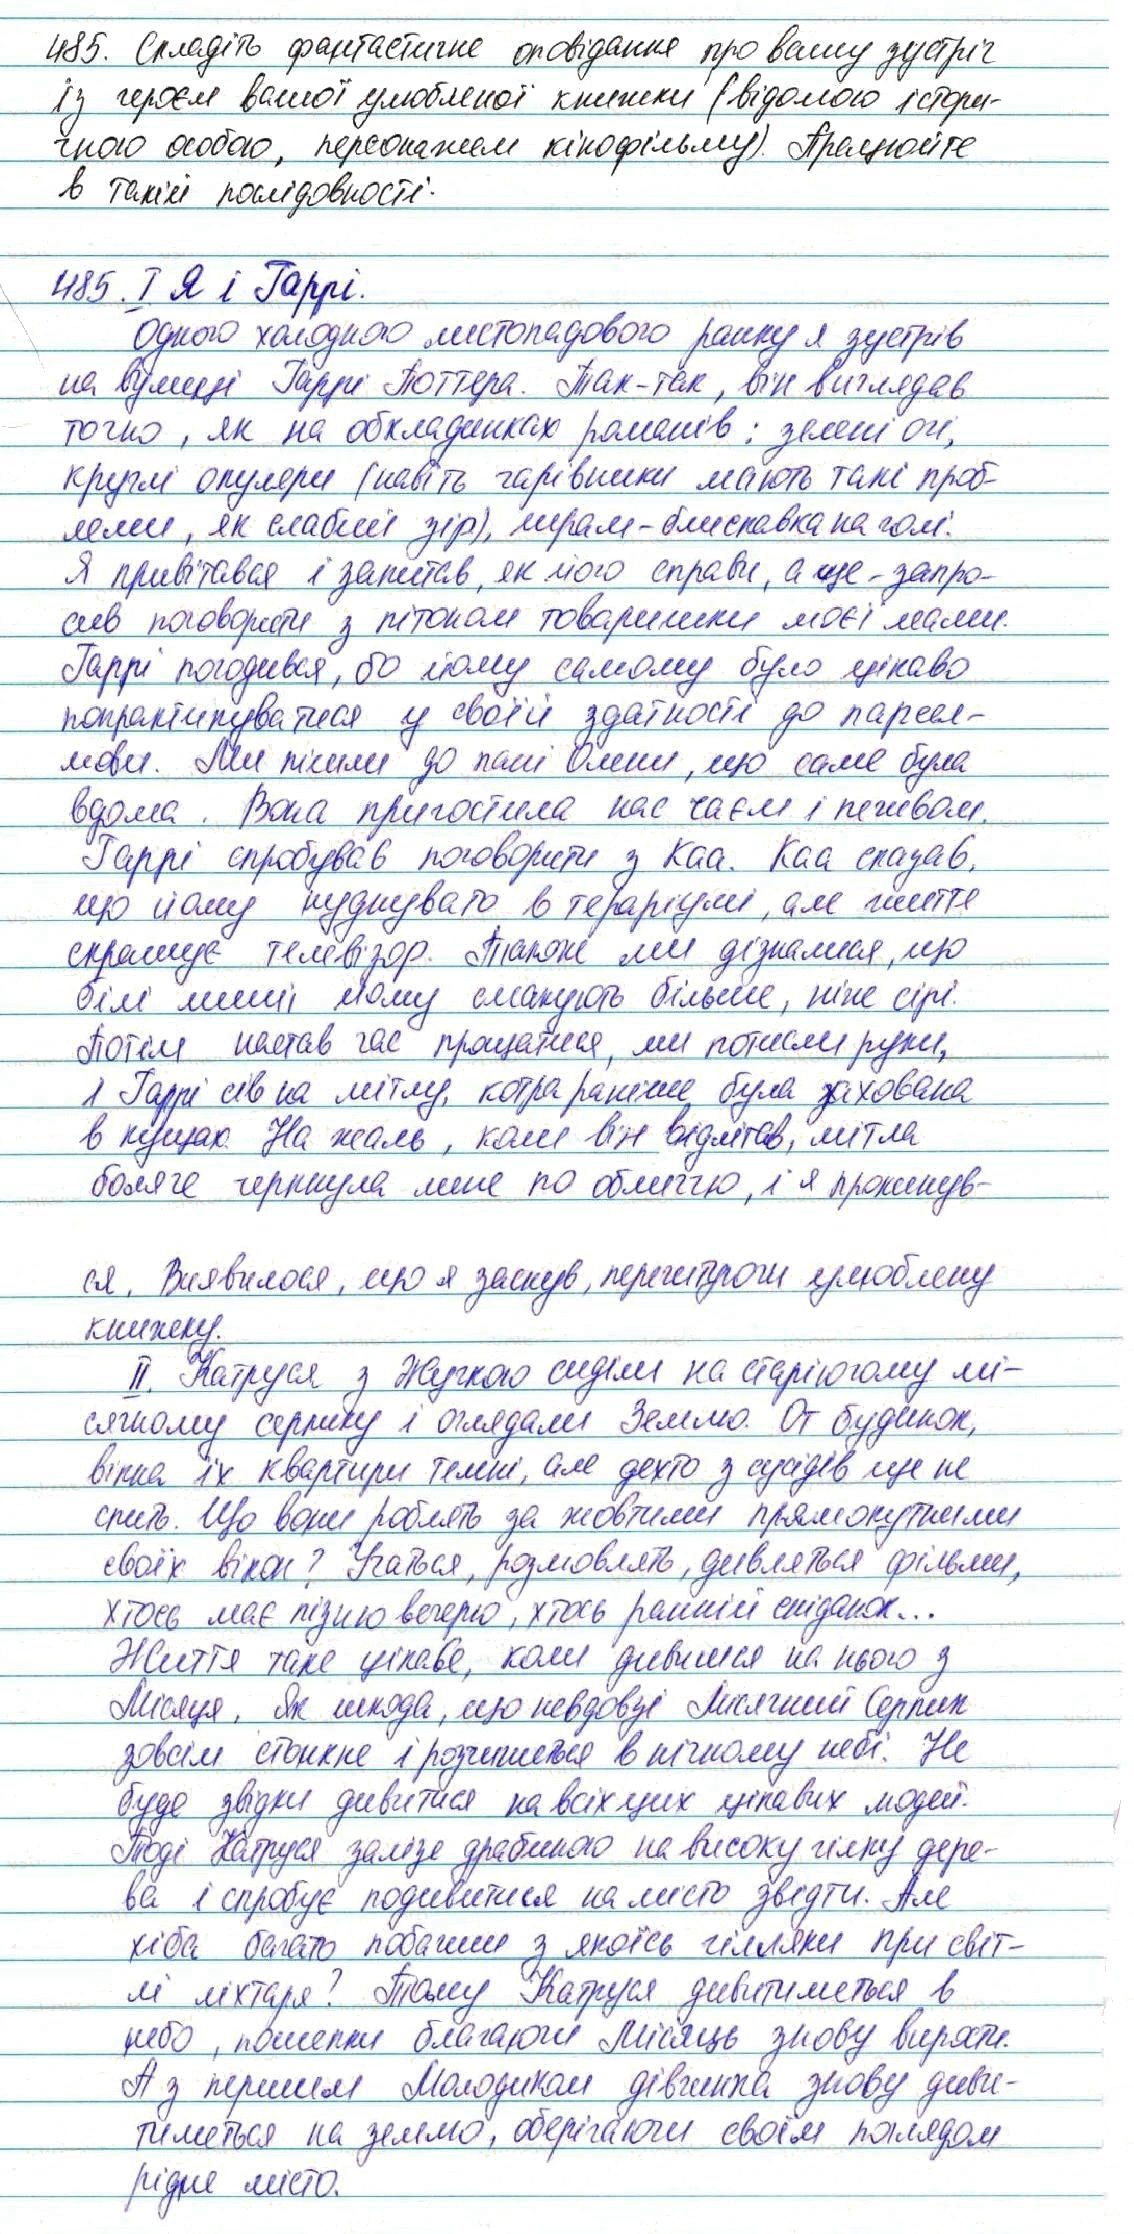 485. Складіть фантастичне оповідання про вашу зустріч
із героєм вашої улюбленої книжки (відомою істори-
чною особою, персонажем кінофільму). Працюйте
в такій послідовності.
485. I Я і Гаррі.
Одного холодного листопадового ранку я зустрів
на вулиці Гаррі Поттера. Так-так, він виглядав
точно, як на обкладинках романів: зелені очі,
круглі окуляри (навіть чарівники мають такі проб-
леми, як слабкий зір), шрам-блискавка на чолі.
Я привітався і запитав, як його справи, а ще - запро-
сив поговорити з пітоном товаришки моєї мами.
Гаррі погодився, бо йому самому було цікаво
попрактикуватися у своїй здатності до парсел-
мови. Ми пішли до пані Олени, що саме була
вдома. Вона пригостила нас чаєм і печивом.
Гаррі спробував поговорити з Каа. Каа сказав,
що йому нуднувато в тераріумі, але життя
скрашує телевізор. Також ми дізналися, що
білі миші йому смакують більше, ніж сірі.
Потім настав час прощатися, ми потисли руки,
і Гаррі сів на мітлу, котра раніше була захована
в кущах. На жаль, коли він відлітав, мітла
боляче черкнула мене по обличчю, і я прокинув-
ся. Виявилося, що я заснув, перечитуючи улюблену
книжку.
II. Катруся з Жучкою сиділи на старіючому мі-
сячному серпику і оглядали Землю. От будинок,
вікна їх квартири темні, але дехто з сусідів ще не
спить. Що вони роблять за жовтими прямокутниками
своїх вікон? Учаться, розмовлять, дивляться фільми,
хтось має пізню вечерю, хтось ранній сніданок...
Життя таке цікаве, коли дивишся на нього з
Місяця. Як шкода, що невдовзі Місячний Серпик
зовсім стоншає і розчиниться в нічному небі. Не
буде звідки дивитися на всіх цих цікавих людей.
Тоді Катруся залізе драбиною на високу гілку дере-
ва і спробує подивитися на місто звідти. Але
хіба багато побачиш з якоїсь гілляки при світ-
лі ліхтаря? Тому Катруся дивитиметься в
небо, пошепки благаючи Місяць знову вирости.
А з першим Молодиком дівчинка знову диви-
тиметься на землю, оберігаючи своїм поглядом
рідне місто.